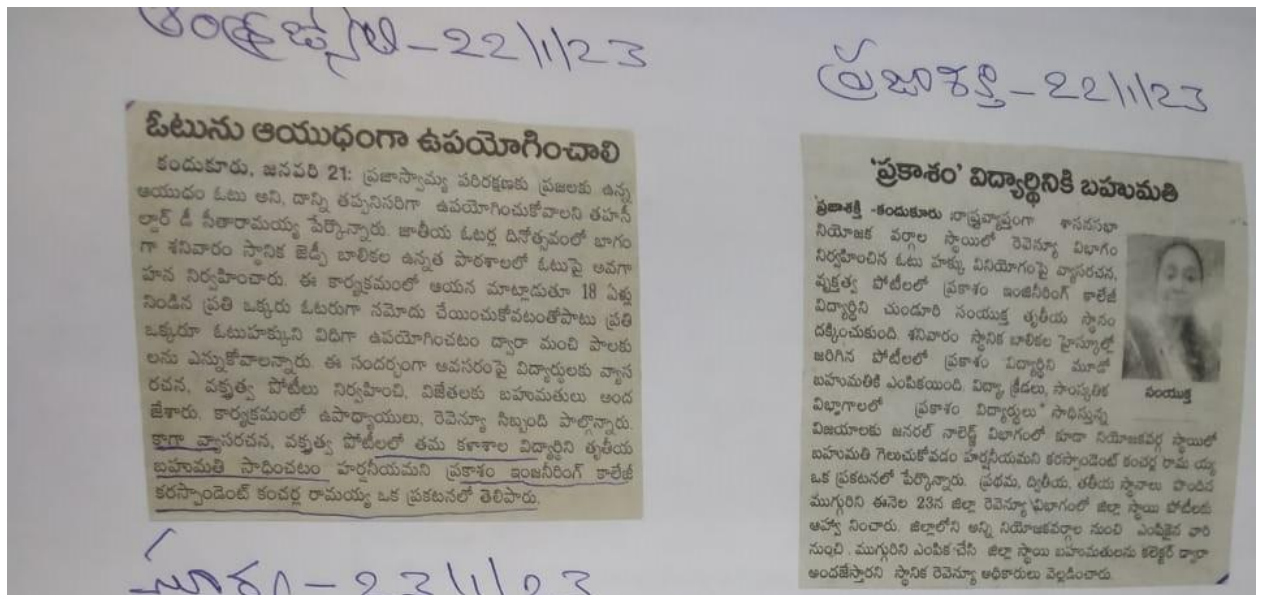 ఆంధ్రజ్యోతి - 22/1/23
ఓటును ఆయుధంగా ఉపయోగించాలి
కందుకూరు, జనవరి 21: ప్రజాస్వామ్య పరిరక్షణకు ప్రజలకు ఉన్న
ఆయుధం ఓటు అని, దాన్ని తప్పనిసరిగా ఉపయోగించుకోవాలని తహసీ
ల్దార్ డీ సీతారామయ్య పేర్కొన్నారు. జాతీయ ఓటర్ల దినోత్సవంలో భాగం
గా శనివారం స్థానిక జెడ్పీ బాలికల ఉన్నత పాఠశాలలో ఓటుపై అవగా
హన నిర్వహించారు. ఈ కార్యక్రమంలో ఆయన మాట్లాడుతూ 18 ఏళ్లు
నిండిన ప్రతి ఒక్కరు ఓటరుగా నమోదు చేయించుకోవటంతోపాటు ప్రతి
ఒక్కరూ ఓటుహక్కుని విధిగా ఉపయోగించటం ద్వారా మంచి పాలకు
లను ఎన్నుకోవాలన్నారు. ఈ సందర్భంగా అవసరంపై విద్యార్థులకు వ్యాస
రచన, వక్తృత్వ పోటీలు నిర్వహించి, విజేతలకు బహుమతులు అంద
జేశారు. కార్యక్రమంలో ఉపాధ్యాయులు, రెవెన్యూ సిబ్బంది పాల్గొన్నారు.
కాగా వ్యాసరచన, వక్తృత్వ పోటీలలో తమ కళాశాల విద్యార్థిని తృతీయ
బహుమతి సాధించటం హర్షనీయమని ప్రకాశం ఇంజనీరింగ్ కాలేజీ
కరస్పాండెంట్ కంచర్ల రామయ్య ఒక ప్రకటనలో తెలిపారు.
- 23/1/23
ప్రజాశక్తి - 22/1/23
'ప్రకాశం' విద్యార్థినికి బహుమతి
ప్రజాశక్తి -కందుకూరు :రాష్ట్రవ్యాప్తంగా శాసనసభా
నియోజక వర్గాల స్థాయిలో రెవెన్యూ విభాగం
నిర్వహించిన ఓటు హక్కు వినియోగంపై వ్యాసరచన,
వృక్తత్వ పోటీలలో ప్రకాశం ఇంజినీరింగ్ కాలేజీ
విద్యార్థిని చుండూరి సంయుక్త తృతీయ స్థానం
దక్కించుకుంది. శనివారం స్థానిక బాలికల హైస్కూల్లో
జరిగిన పోటీలలో ప్రకాశం విద్యార్థిని మూడో
బహుమతికి ఎంపికయింది. విద్యా, క్రీడలు, సాంస్కృతిక
విభాగాలలో ప్రకాశం విద్యార్థులు సాధిస్తున్న
సంయుక్త
విజయాలకు జనరల్ నాలెడ్జ్ విభాగంలో కూడా నియోజకవర్గ స్థాయిలో
బహుమతి గెలుచుకోవడం హర్షనీయమని కరస్పాండెంట్ కంచర్ల రామ య్య
ఒక ప్రకటనలో పేర్కొన్నారు. ప్రథమ, ద్వితీయ, తతీయ స్థానాలు పొందిన
ముగ్గురిని ఈనెల 23న జిల్లా రెవెన్యూ విభాగంలో జిల్లా స్థాయి పోటీలకు
ఆహ్వా నించారు. జిల్లాలోని అన్ని నియోజకవర్గాల నుంచి ఎంపికైన వారి
నుంచి ముగ్గురిని ఎంపిక చేసి జిల్లా స్థాయి బహుమతులను కలెక్టర్ ద్వారా
అందజేస్తారని స్థానిక రెవెన్యూ అధికారులు వెల్లడించారు.